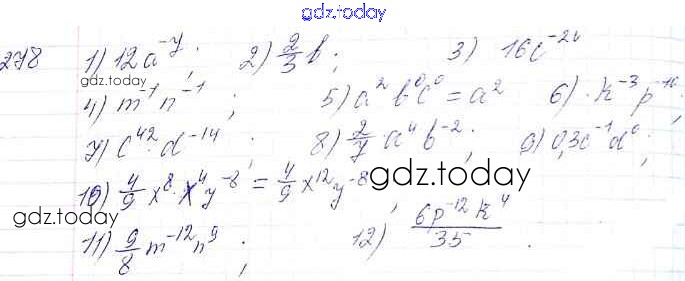 gdz.today
278 1) 12a⁻⁷; 2) 2/3 b; 3) 16c⁻²⁶
gdz.today
4) m⁻¹n⁻¹; 5) a²b⁰c⁰ = a² 6) k⁻³p⁻¹⁰;
7) c⁴²·d⁻¹⁴; 8) 2/7 a⁴b⁻²; 9) 0,3c⁻¹d⁰;
10) 4/9 x⁸·x⁴y⁻⁸ = 4/9 x¹²y⁻⁸; gdz.today
gdz.today
11) 9/8 m⁻¹²n⁹; 12) 6p⁻¹²k⁴/35.